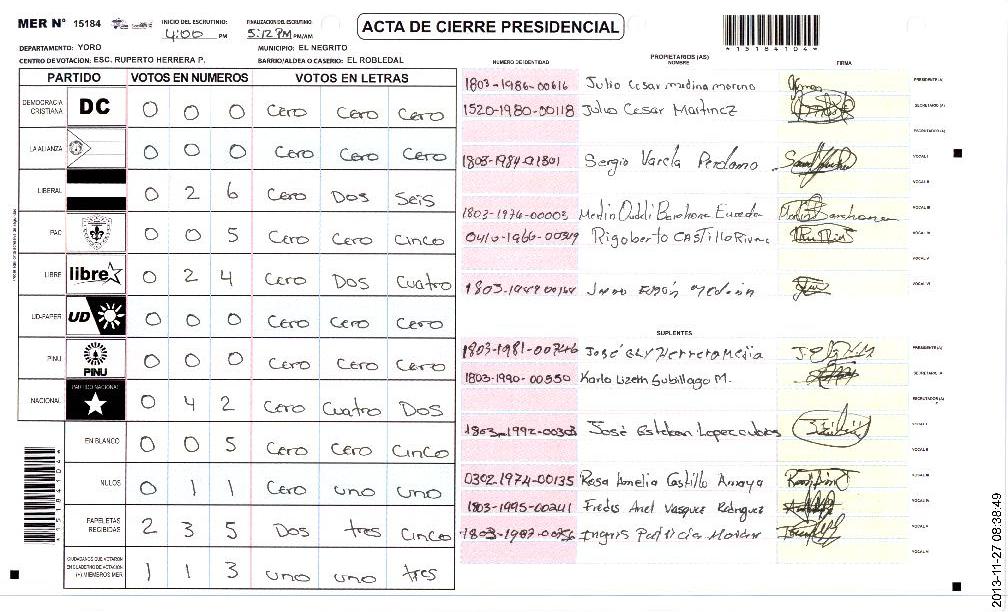 MER N° 15184
INICIO DEL ESCRUTINIO: 4:00 PM
FINALIZACION DEL ESCRUTINIO 5:12 PM PM/AM
ACTA DE CIERRE PRESIDENCIAL
*15184104*
DEPARTAMENTO: YORO
MUNICIPIO: EL NEGRITO
CENTRO DE VOTACION: ESC. RUPERTO HERRERA P.
BARRIO/ALDEA O CASERIO: EL ROBLEDAL
PARTIDO VOTOS EN NUMEROS VOTOS EN LETRAS
DEMOCRACIA CRISTIANA DC 0 0 0 Cero Cero Cero
LA ALIANZA 0 0 0 Cero Cero Cero
LIBERAL 0 2 6 Cero Dos Seis
PAC 0 0 5 Cero Cero Cinco
LIBRE libre 0 2 4 Cero Dos Cuatro
UD-FAPER UD 0 0 0 Cero Cero Cero
PINU PINU 0 0 0 Cero Cero Cero
NACIONAL PARTIDO NACIONAL 0 4 2 Cero Cuatro Dos
EN BLANCO 0 0 5 Cero Cero Cinco
NULOS 0 1 1 Cero uno uno
PAPELETAS RECIBIDAS 2 3 5 Dos tres Cinco
CIUDADANOS QUE VOTARON EN CUADERNO DE VOTACION (+) MIEMBROS MER 1 1 3 uno uno tres
*15184104*
PROPIETARIOS (AS)
NUMERO DE IDENTIDAD NOMBRE FIRMA
1803-1986-00616 Julio Cesar medina moreno PRESIDENTE (A)
1520-1980-00118 Julio Cesar Martinez SECRETARIO (A)
ESCRUTADOR (A)
1803-1984-01301 Sergio Varela Perdomo VOCAL I
VOCAL II
1803-1974-00003 Barahona VOCAL III
Rigoberto CASTillo Rivera VOCAL IV
VOCAL V
VOCAL VI
SUPLENTES
1803-1981-00746 José Ely Herrera Mejia PRESIDENTE (A)
1803-1990-00550 Karla Lizeth Gubillago M. SECRETARIO (A)
ESCRUTADOR (A)
1803-1992-00303 José Esteban Lopez VOCAL I
VOCAL II
0302-1974-00135 Rosa Amelia Castillo Amaya VOCAL III
1803-1995-00241 Fredis Ariel Vasquez Rodriguez VOCAL IV
Ingris Patricia VOCAL V
VOCAL VI
2013-11-27 09:38:49